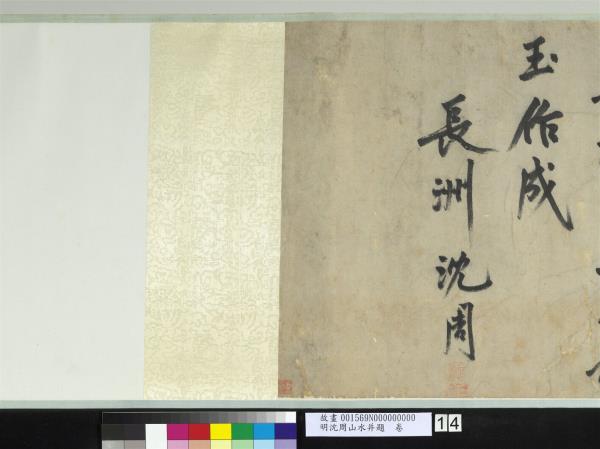 玉伯成
長洲沈周
故畫 001569N000000000
明沈周山水并題 卷
14